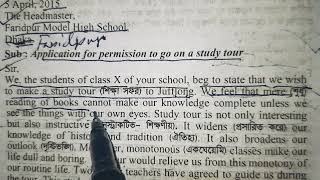 5 April, 2015
The Headmaster,
Faridpur Model High School
Dhaka Faridpur
Sub : Application for permission to go on a study tour
Sir,
We, the students of class X of your school, beg to state that we wish
to make a study tour (শিক্ষা সফর) to Juttjong. We feel that mere
reading of books cannot make our knowledge complete unless we
see the things with our own eyes. Study tour is not only interesting
but also instructive শিক্ষণীয়). It widens (প্রসারিত করে) our
knowledge of history and tradition (ঐতিহ্য). It also broadens our
outlook (দৃষ্টিভঙ্গি). Moreover, monotonous (একঘেয়েমি) classes make our
life dull and boring. tour would relieve us from this monotony of
our routine life. Two teachers